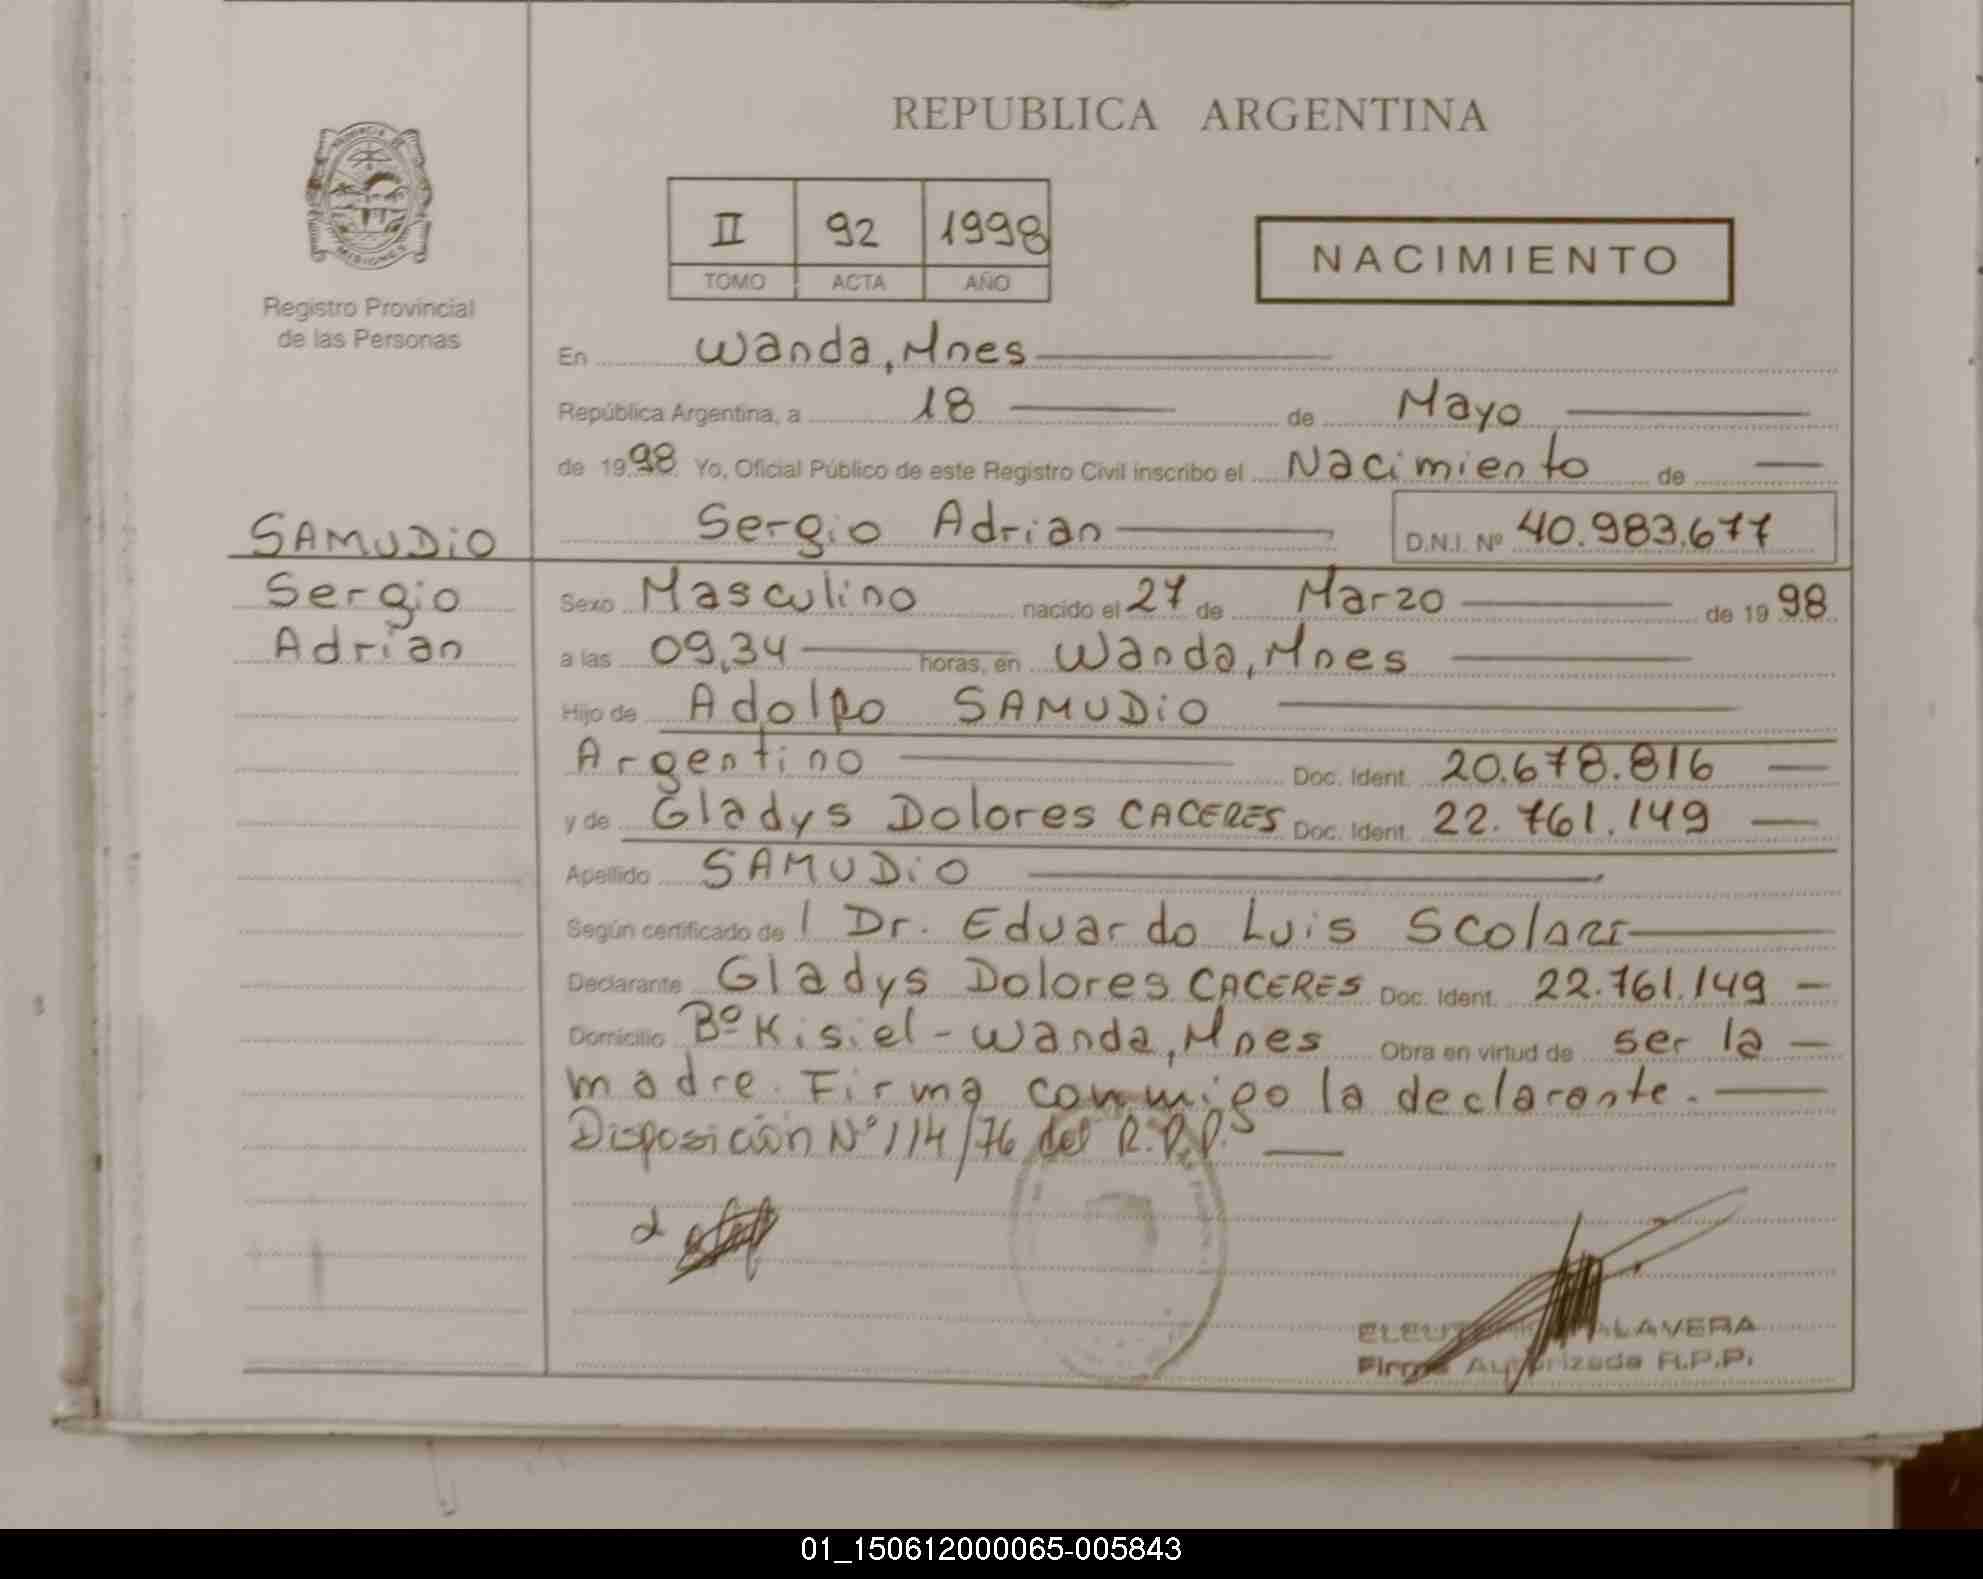 REPUBLICA ARGENTINA
II 92 1998
TOMO ACTA AÑO
NACIMIENTO
Registro Provincial
de las Personas
En Wanda, Mnes
República Argentina, a 18 de Mayo
de 1998 Yo, Oficial Público de este Registro Civil inscribo el Nacimiento de
Sergio Adrian D.N.I. Nº 40.983.677
SAMUDIO
Sergio
Adrian
Sexo Masculino nacido el 27 de Marzo de 1998
a las 09,34 horas, en Wanda, Mnes
Hijo de Adolfo SAMUDIO
Argentino Doc. Ident. 20.678.816
y de Gladys Dolores CACERES Doc. Ident. 22.761.149
Apellido SAMUDIO
Según certificado de l Dr. Eduardo Luis Scolari
Declarante Gladys Dolores CACERES Doc. Ident. 22.761.149
Domicilio Bº Kisiel - Wanda, Mnes Obra en virtud de ser la
madre. Firma conmigo la declarante.
Disposición Nº 114/76 del R.P.P.
ALAVERA
Firma Autorizada R.P.P.
01_150612000065-005843